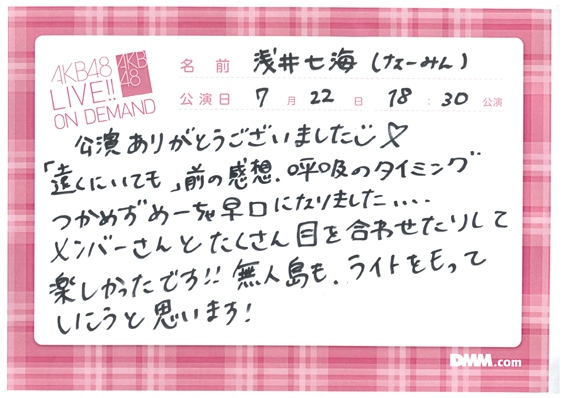 AKB48
LIVE!!
ON DEMAND
AKB
48
名 前 浅井七海(なーみん)
公演日 7 月 22 日 18 : 30 公演
公演ありがとうございました
「遠くにいても」前の感想、呼吸のタイミング
つかめずめーちゃ早口になりました....
メンバーさんとたくさん目を合わせたりして
楽しかったです!! 無人島も、ライトをもって
いこうと思います!
DMM.com